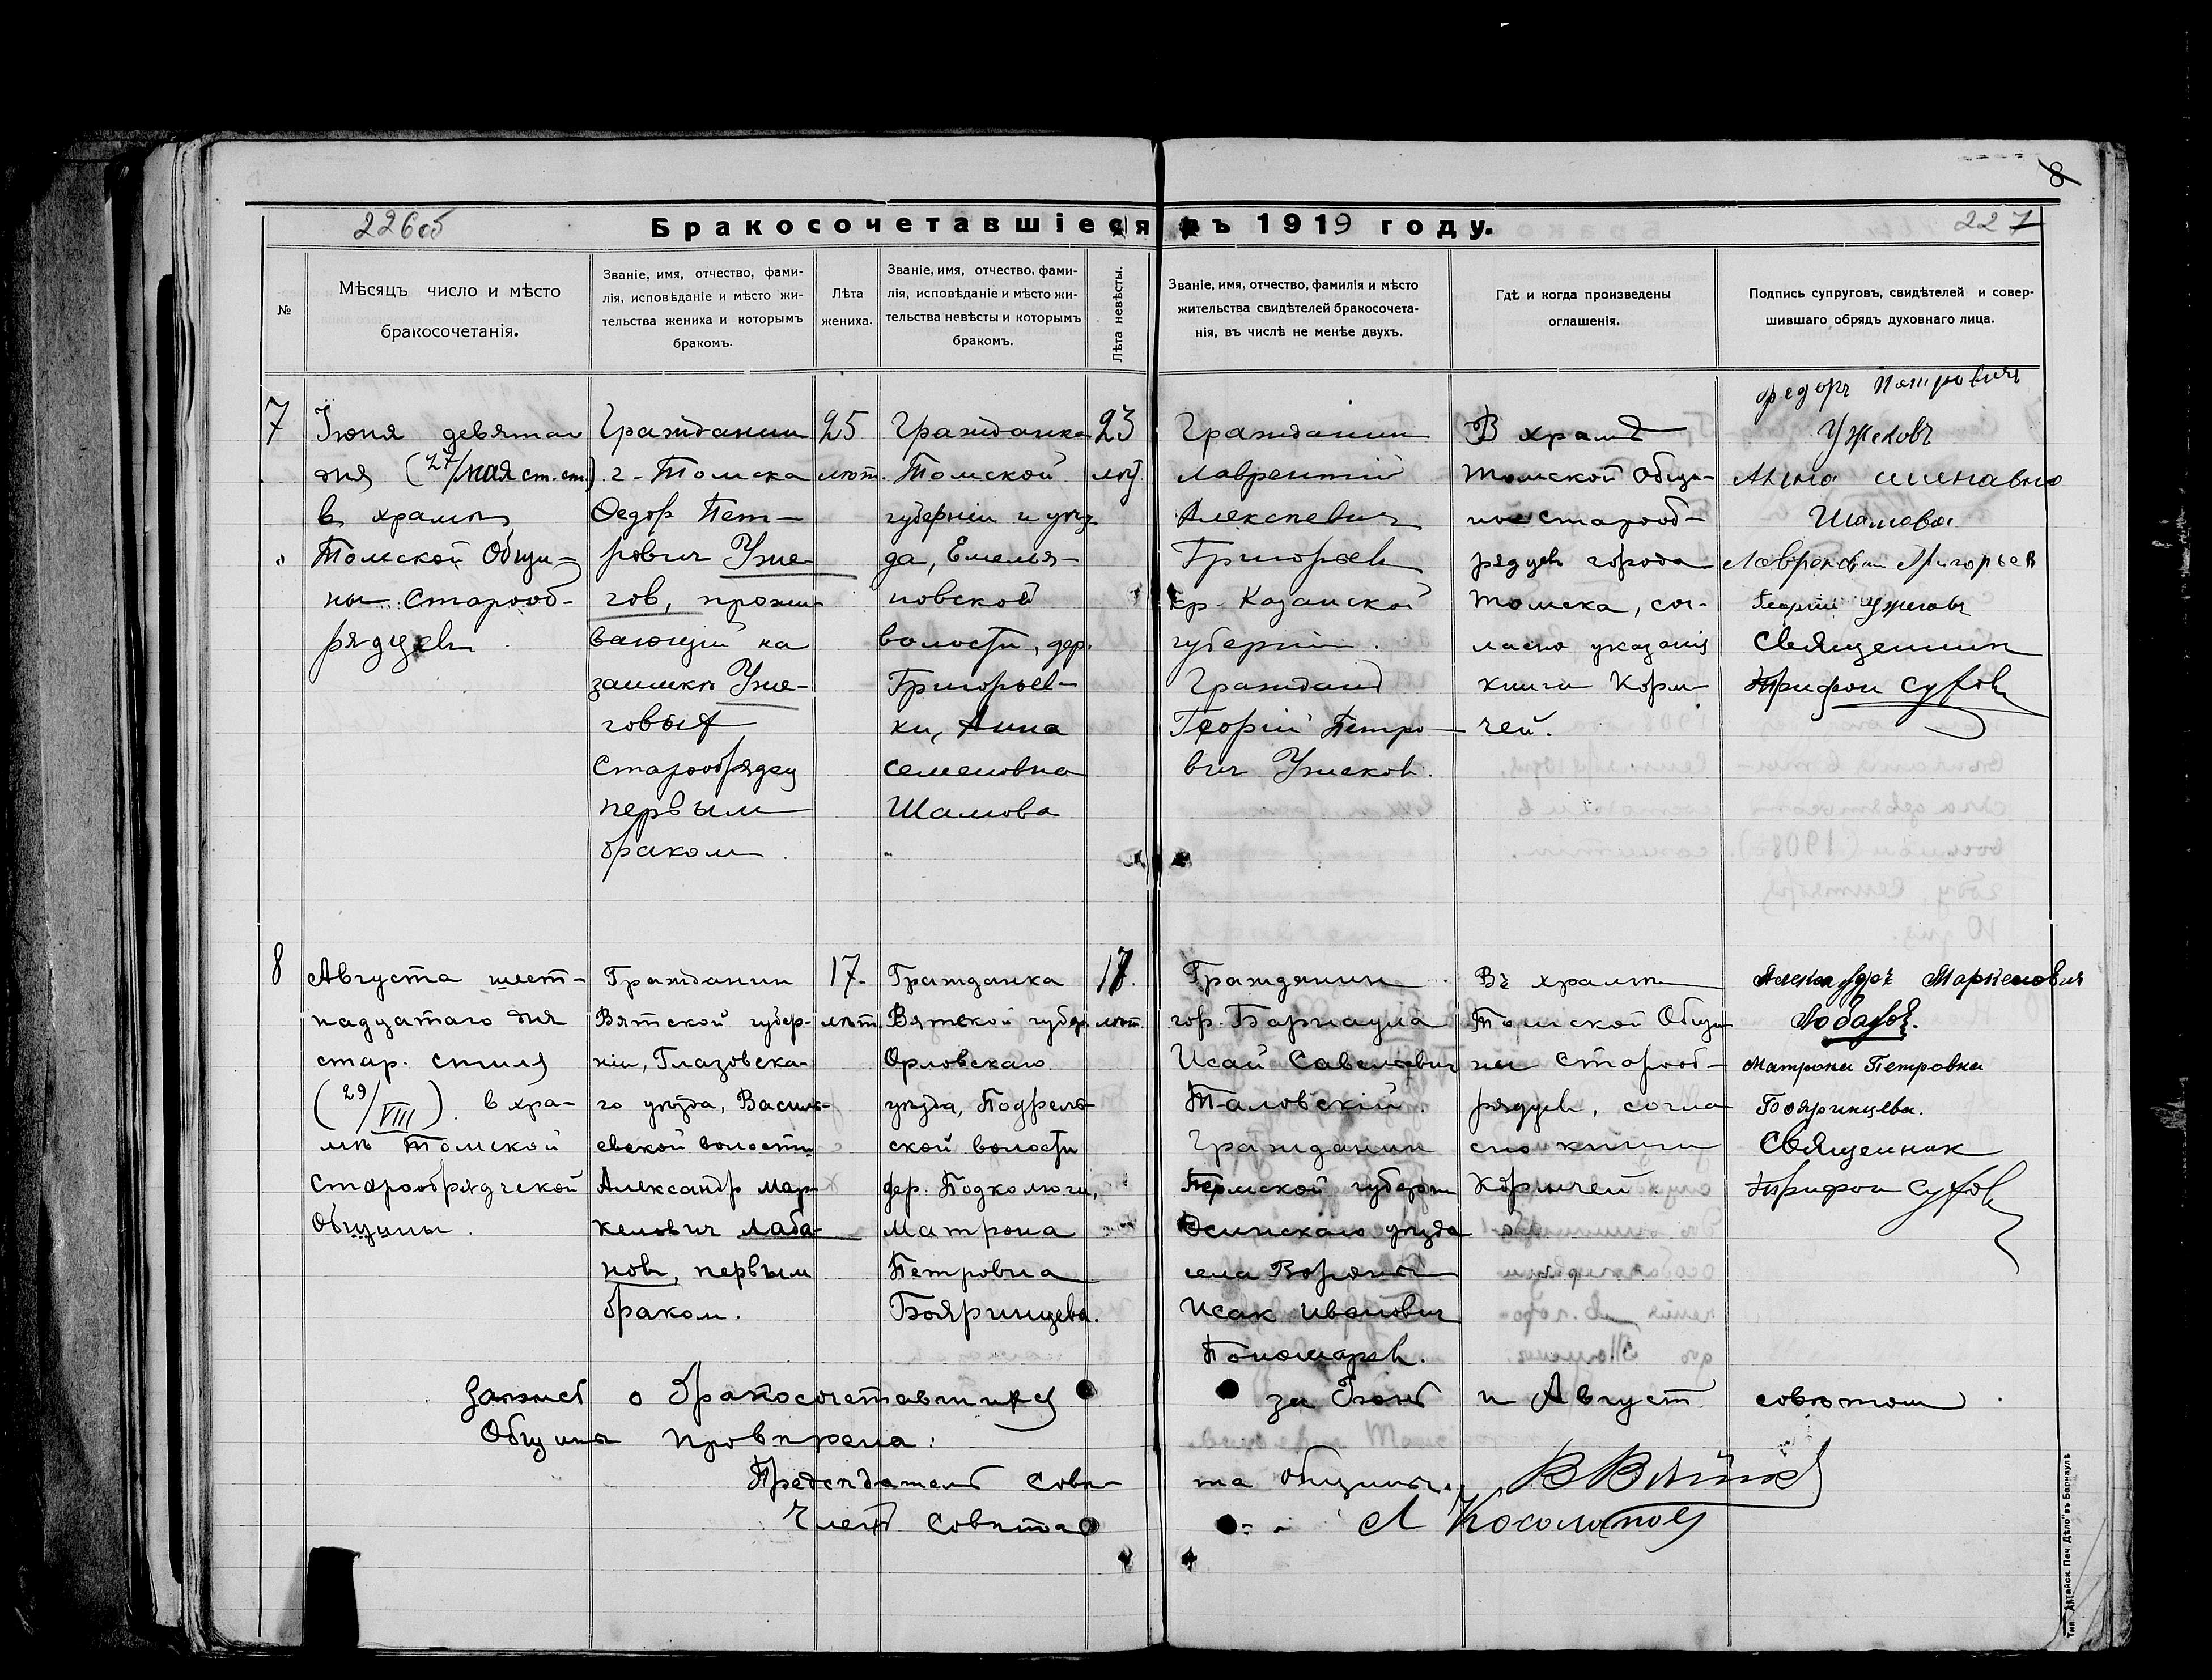 8
226об
Бракосочетавшіеся въ 1919 году.
227
№
Мѣсяцъ число и мѣсто
бракосочетанія.
Званіе, имя, отчество, фами-
лія, исповѣданіе и мѣсто жи-
тельства жениха и которымъ
бракомъ.
Лѣта
жениха.
Званіе, имя, отчество, фами-
лія, исповѣданіе и мѣсто жи-
тельства невѣсты и которымъ
бракомъ.
Лѣта невѣсты.
Званіе, имя, отчество, фамилія и мѣсто
жительства свидѣтелей бракосочета-
нія, въ числѣ не менѣе двухъ.
Гдѣ и когда произведены
оглашенія.
Подпись супруговъ, свидѣтелей и совер-
шившаго обрядъ духовнаго лица.
7
Іюня девятаго
дня (27/мая ст. ст.)
в храмѣ
Томской Общи-
ны Старооб-
рядцев
Гражданин
г. Томска
Федор Пет-
рович Уже-
гов, прожи-
вающий на
заимкѣ Уже-
говых
Старообрядец
первым
браком.
25
лѣт.
Гражданка
Томской
губерніи и уѣз-
да, Емелья-
новской
волости, дер.
Григорьев-
ки, Анна
Семеновна
Шамова
23
лѣт
Гражданин
Лаврентий
Алексѣевич
Григорьев
кр. Казанской
губерніи.
Граждан
Георгій Петро-
вич Ужеков.
В храмѣ
Томской Общи-
ны Старооб-
рядцев города
Томска, сог-
ласно указанія
книги Корм-
чей.
Федоръ Петровичъ
Ужековъ
Анна
Шамова
Лаврентий Григорьев
Георгий Ужеговъ
Священник
Трифон Сухов
8
Августа шест-
надцатаго дня
стар. стиля
(29/VIII) в хра-
мѣ Томской
Старообрядческой
Общины.
Гражданин
Вятской губер-
ніи, Глазовска-
го уѣзда, Василь-
евской волости
Александр Мар-
келович Лаба-
нов, первым
браком.
17.
лѣт.
Гражданка
Вятской губер.
Орловскаго
уѣзда, Подрель-
ской волости
дер. Подколюги,
Матрона
Петровна
Бояринцева.
17.
лѣт.
Гражданин
гор. Барнаула
Исай Савельевич
Таловский.
Гражданин
Пермской губерніи
Осинскаго уѣзда
села
Исак Иванович
Пономарев.
Въ храмѣ
Томской Общи-
ны Старооб-
рядцев, согла-
сно книги
Кормчей.
Александръ Маркелович
Лобановъ.
Матрона Петровна
Бояринцева.
Священник
Трифон Сухов
Запись о бракосочетавшихся за Іюнь и Август совѣтом
Общины провѣрена:
Председатель Совѣ-та общины.
Член Совѣта
Л Косолапов
Тип. Алтайск. Печ. Дѣло" въ Барнаулѣ